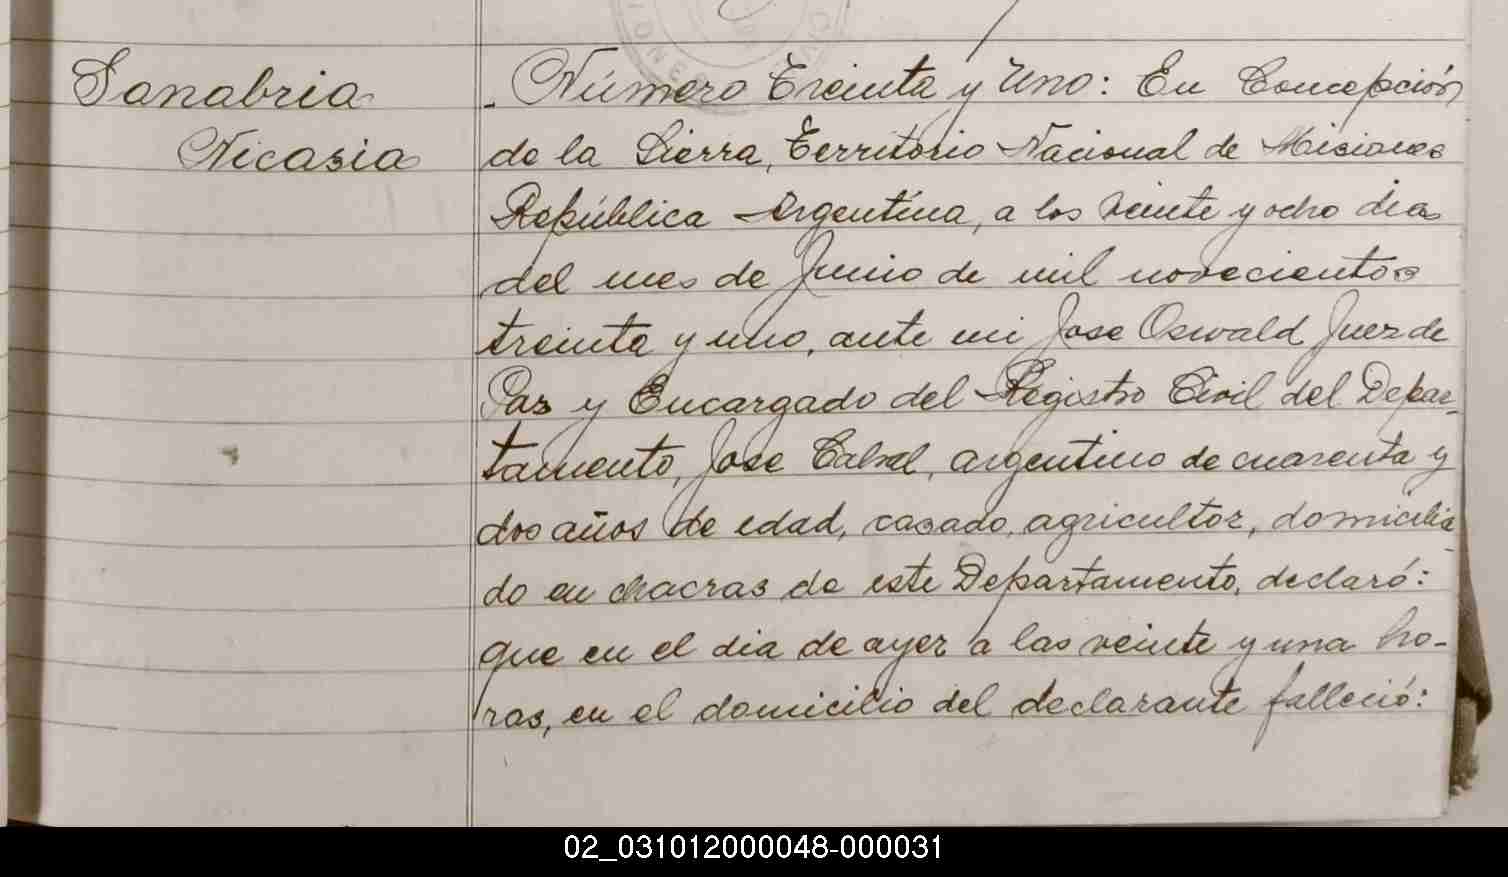 Sanabria
Nicasia
Número Treinta y Uno: En Concepción
de la Sierra, Territorio Nacional de Misiones
República Argentina, a los veinte y ocho dias
del mes de Junio de mil novecientos
treinta y uno, ante mi Jose Oswald Juez de
Paz y Encargado del Registro Civil del Depar-
tamento, Jose Cabral, argentino de cuarenta y
dos años de edad, casado, agricultor, domicilia-
do en chacras de este Departamento, declaró:
que en el dia de ayer a las veinte y una ho-
ras, en el domicilio del declarante falleció:
02_031012000048-000031